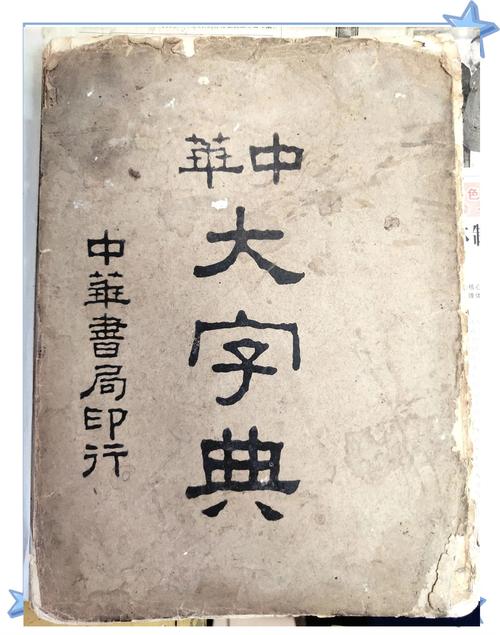 中華
大字典
中華書局印行
色